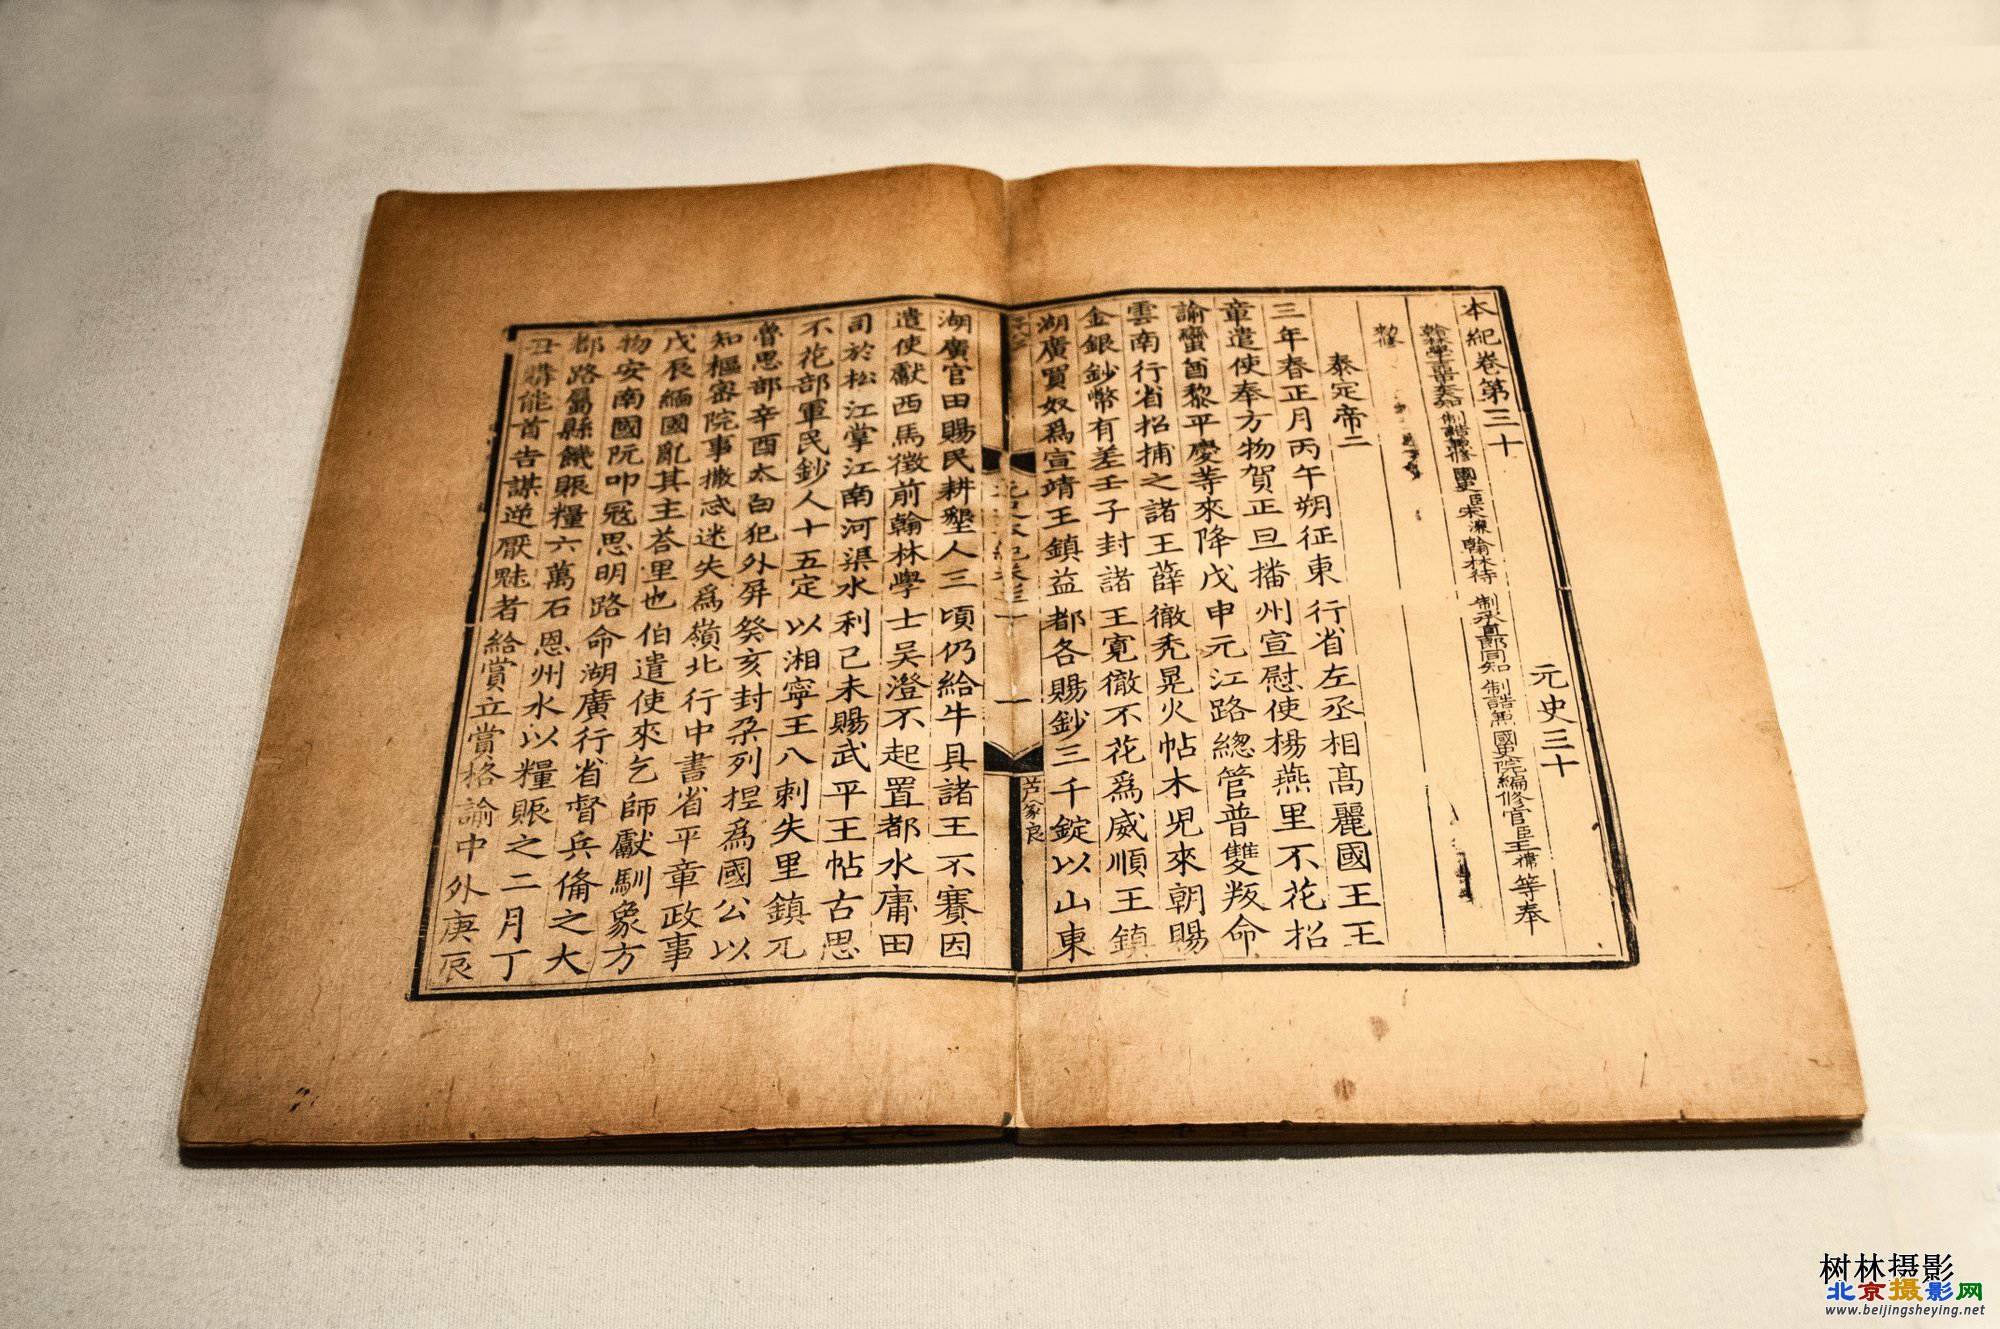 本紀卷第三十 元史三十
翰林學士亞中大夫知制誥兼修國史臣宋濂 翰林待制承直郎同知制誥兼國史院編修官臣王禕等奉
勅修
泰定帝二
三年春正月丙午朔征東行省左丞相高麗國王王
章遣使奉方物賀正旦播州宣慰使楊燕里不花招
諭蠻酋黎平慶等來降戊申元江路總管普雙叛命
雲南行省招捕之諸王薛徹禿晃火帖木兒來朝賜
金銀鈔幣有差壬子封諸王寬徹不花爲威順王鎮
湖廣買奴爲宣靖王鎮益都各賜鈔三千錠以山東
一
湖廣官田賜民耕墾人三頃仍給牛具諸王不賽因
遣使獻西馬徵前翰林學士吳澄不起置都水庸田
司於松江掌江南河渠水利己未賜武平王帖古思
不花部軍民鈔人十五定以湘寧王八剌失里鎮兀
魯思部辛酉太白犯外屏癸亥封朶列捏爲國公以
知樞密院事撒忒迷失爲嶺北行中書省平章政事
戊辰緬國亂其主荅里也伯遣使來乞師獻馴象方
物安南國阮叩寇思明路命湖廣行省督兵備之大
都路屬縣饑賑糧六萬石恩州水以糧賑之二月丁
丑購能首告謀逆厭魅者給賞立賞格諭中外庚辰
树林摄影
北京摄影网
www.beijingsheying.net